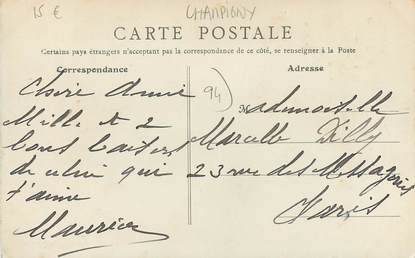 15 €
CHAMPIGNY
CARTE POSTALE
Certains pays étrangers n'acceptant pas la correspondance de ce côté, se renseigner à la Poste
Correspondance
Adresse
94
Chère Amie
Mille et 2
bons baisers
de celui qui
t'aime
Maurice
Mademoiselle
Marcelle Dilly
23 rue des Messageries
Paris